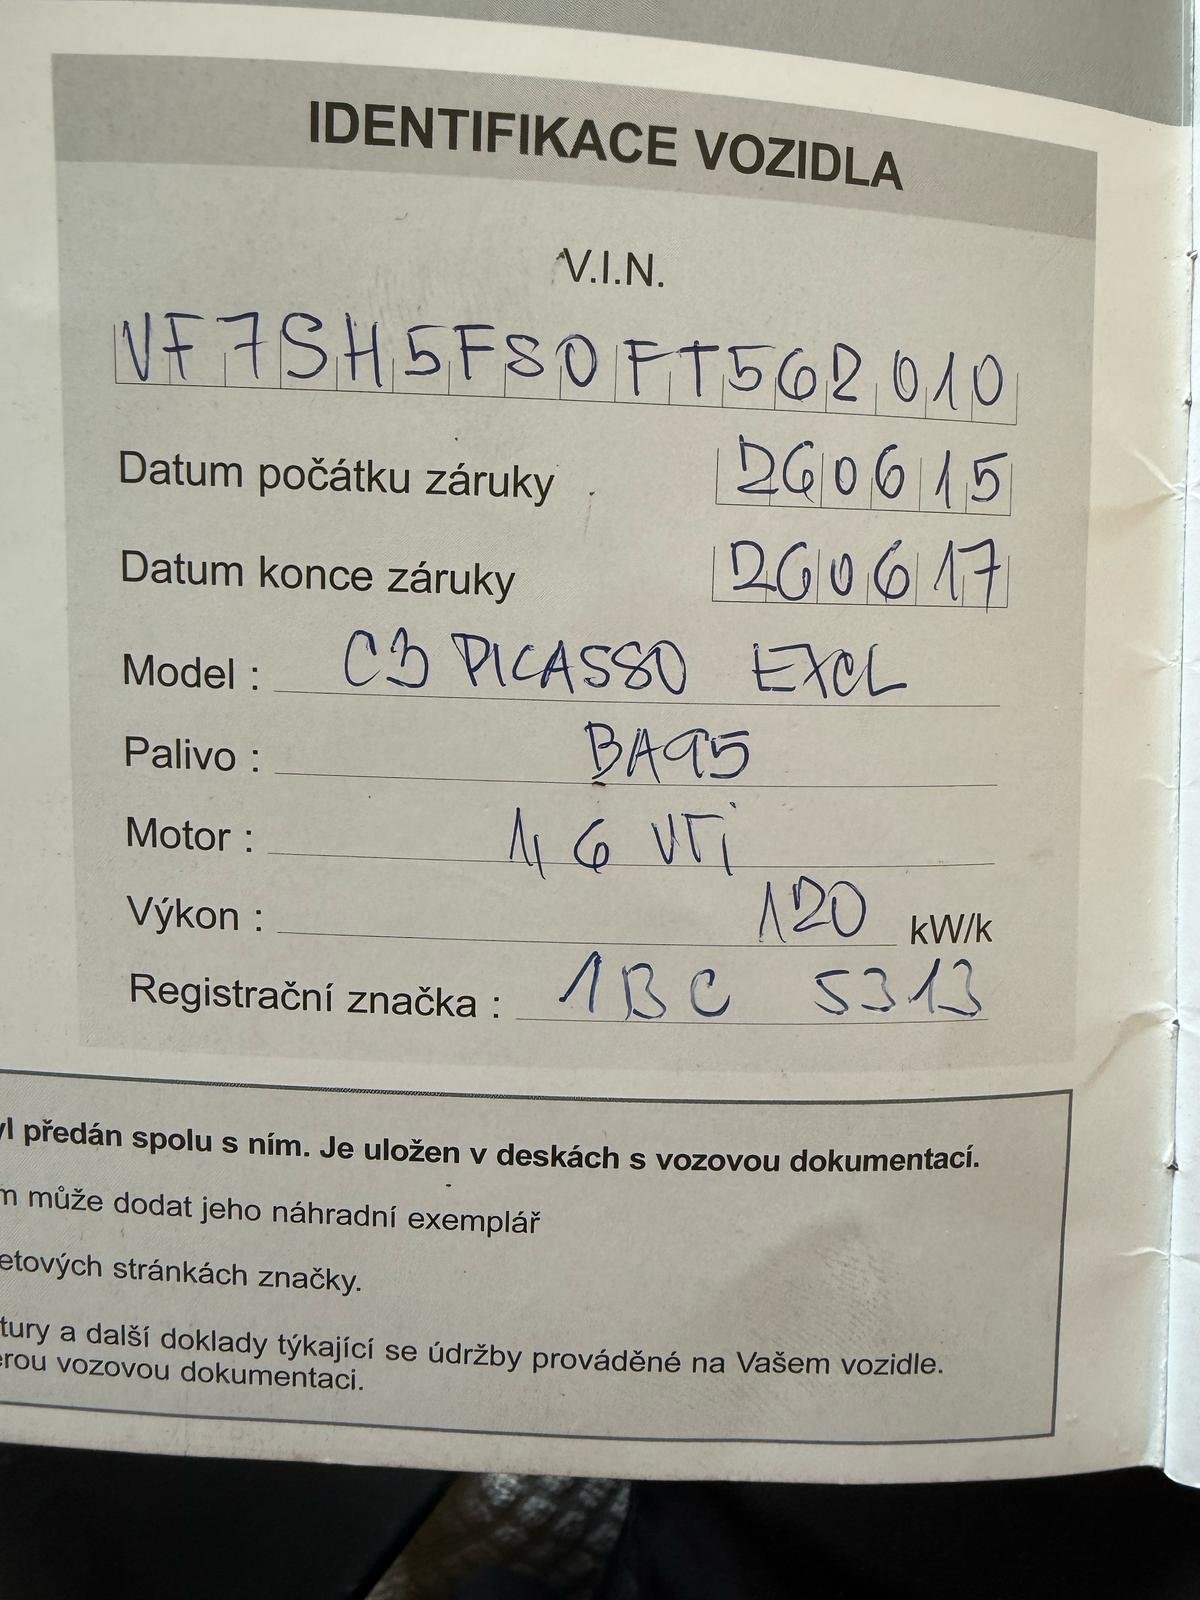 IDENTIFIKACE VOZIDLA
V.I.N.
VF7SH5FS0FT562010
Datum počátku záruky 260615
Datum konce záruky 260617
Model : C3 PICASSO EXCL
Palivo : BA95
Motor : 1,6 VTi
Výkon : 120 kW/k
Registrační značka : 1BC 5313
yl předán spolu s ním. Je uložen v deskách s vozovou dokumentací.
m může dodat jeho náhradní exemplář
etových stránkách značky.
tury a další doklady týkající se údržby prováděné na Vašem vozidle.
erou vozovou dokumentaci.